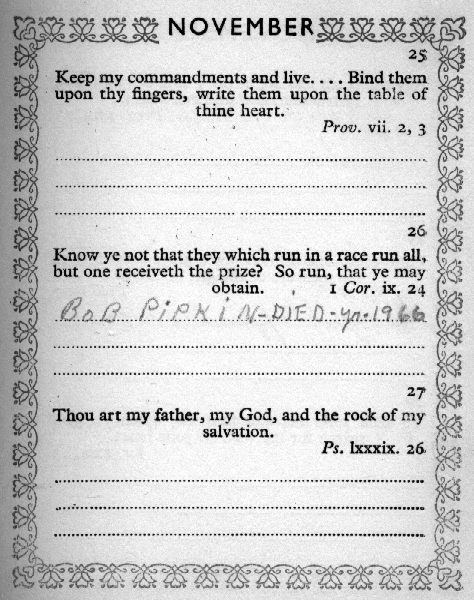 NOVEMBER
25
Keep my commandments and live.... Bind them
upon thy fingers, write them upon the table of
thine heart.
Prov. vii. 2, 3
26
Know ye not that they which run in a race run all,
but one receiveth the prize? So run, that ye may
obtain. 1 Cor. ix. 24
BOB PIPKIN-DIED-yr.1966
27
Thou art my father, my God, and the rock of my
salvation.
Ps. lxxxix. 26